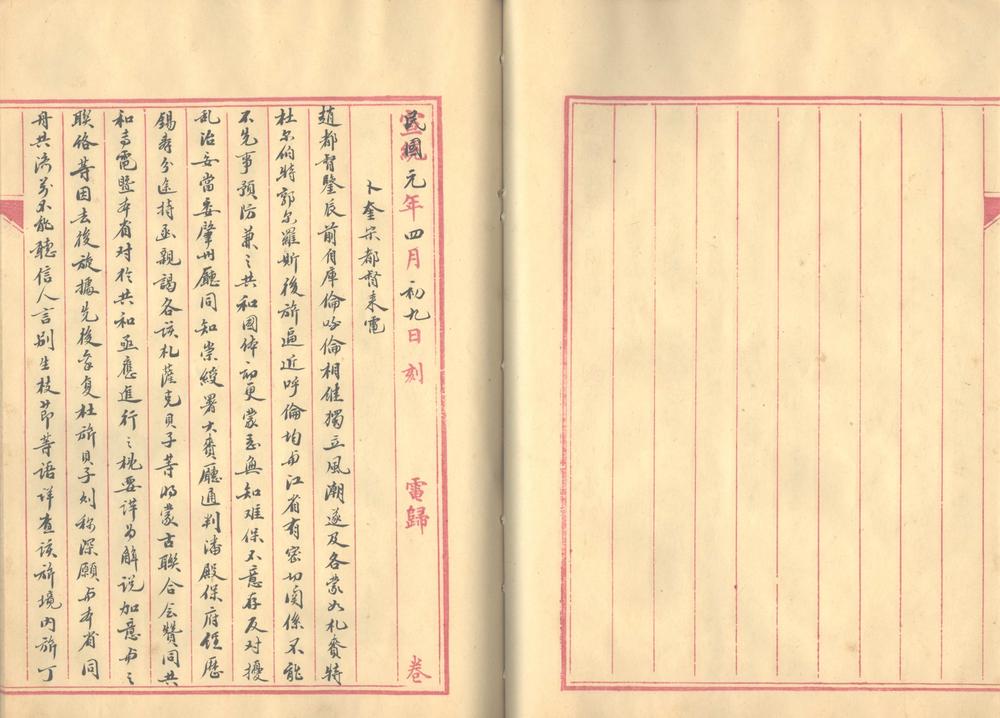 民國元年四月初九日 刻 電歸 卷
卜奎宋都督來電
趙都督鑒辰前自庫倫呼倫相繼獨立風潮遂及各蒙如札賚特
杜尔伯特郭尔羅斯後旂逼近呼倫均与江省有密切関係不能
不先事預防兼之共和國体初更蒙愚無知难保不意存反对擾
乱治安當委肇州廳同知崇綬署大賚廳通判潘殿保府経歴
錫壽分途持函親謁各該札薩克貝子等將蒙古聯合会贊同共
和青電暨本省对於共和亟應進行之概要詳为解説加意与之
聯絡等因去後旋據先後会复杜旂貝子則称深願与本省同
舟共济萬不能聽信人言別生枝節等語详查该旂境内旂丁